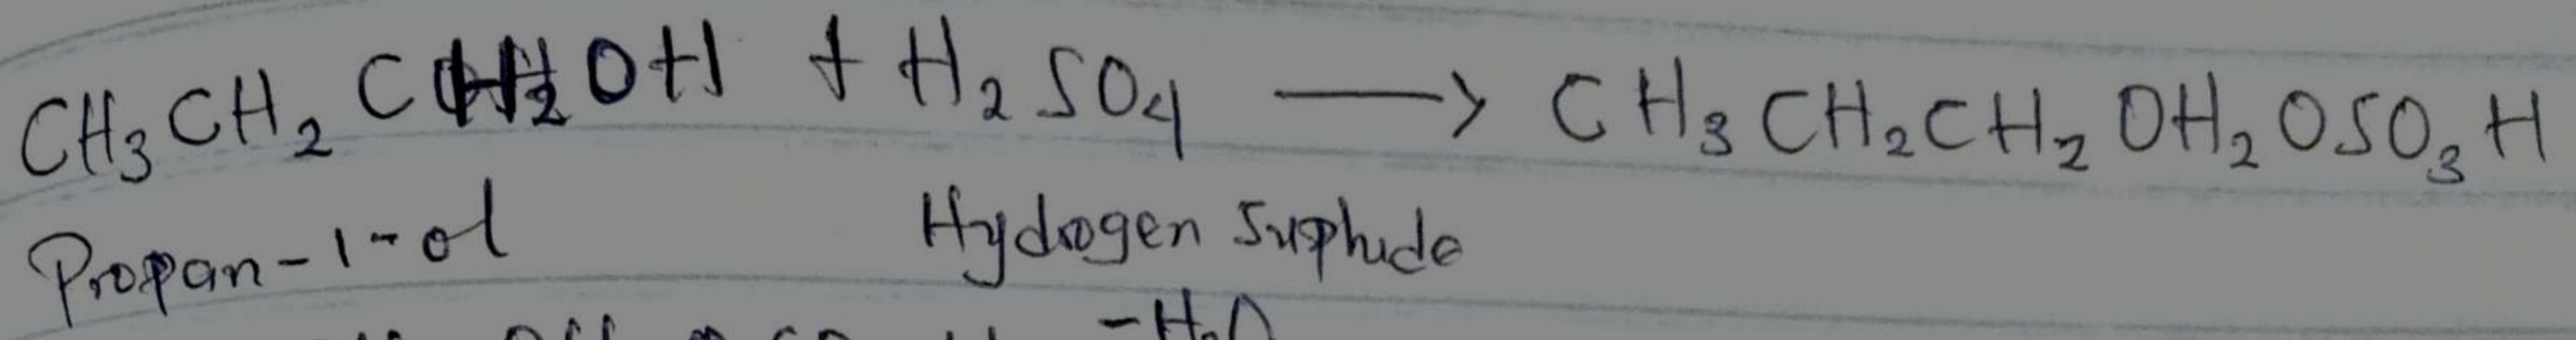 CH₃CH₂CH₂OH + H₂SO₄ ⟶ CH₃CH₂CH₂OH₂OSO₃H
Propan-1-ol Hydrogen Suphide
-H₂O